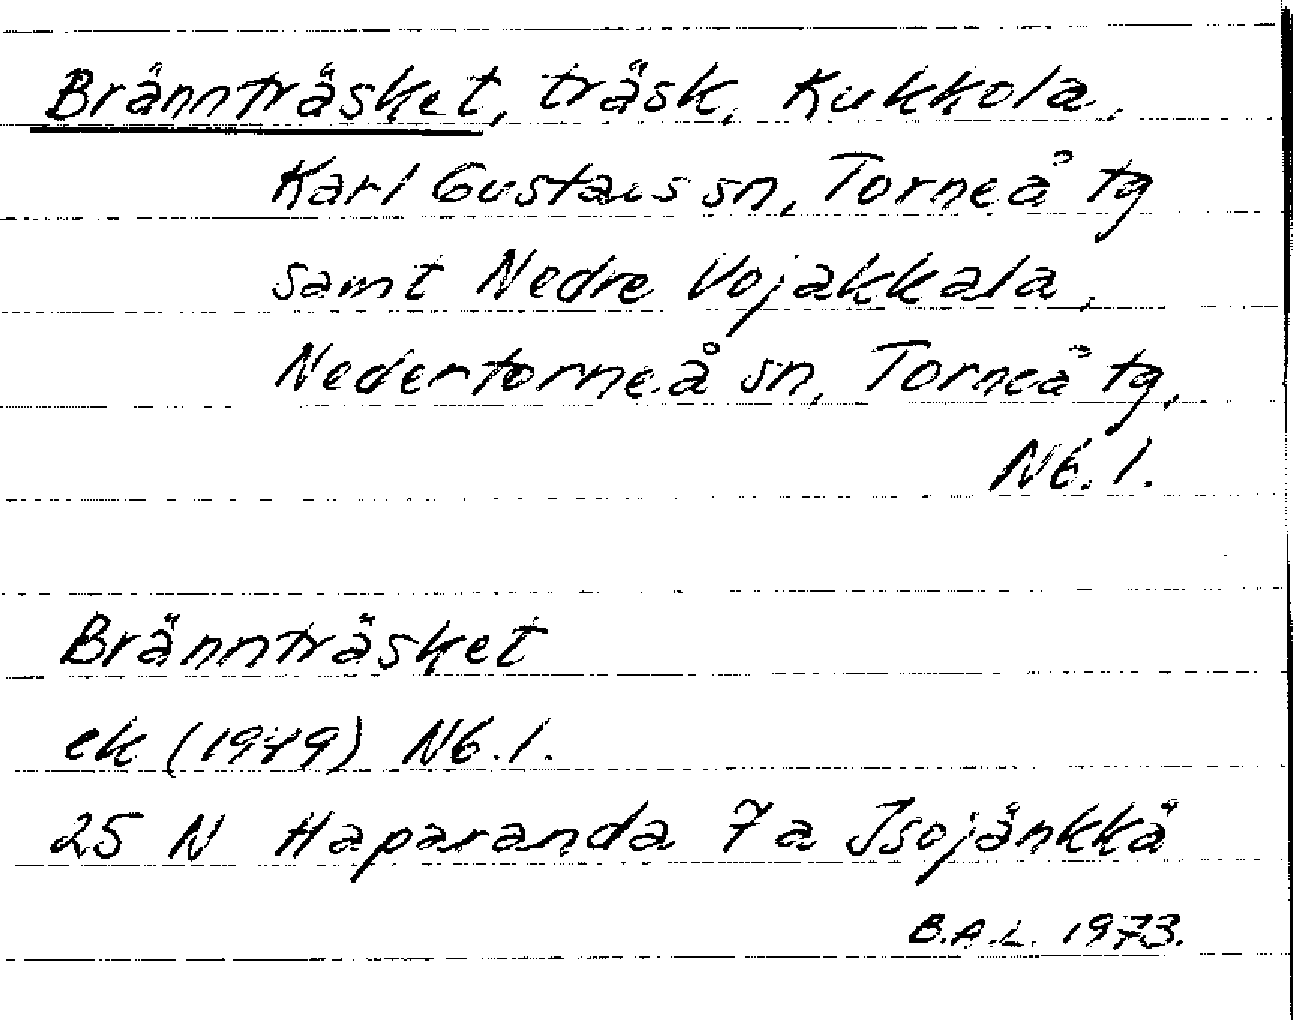 Brännträsket, träsk, Kukkola,
Karl Gustavs sn, Torneå tg
samt Nedre Vojakkala,
Nedertorneå sn, Torneå tg,
Nb. l.
Brännträsket
ek (1949) Nb. l.
25 N Haparanda 7 a Isojänkkä
B.A.L. 1973.